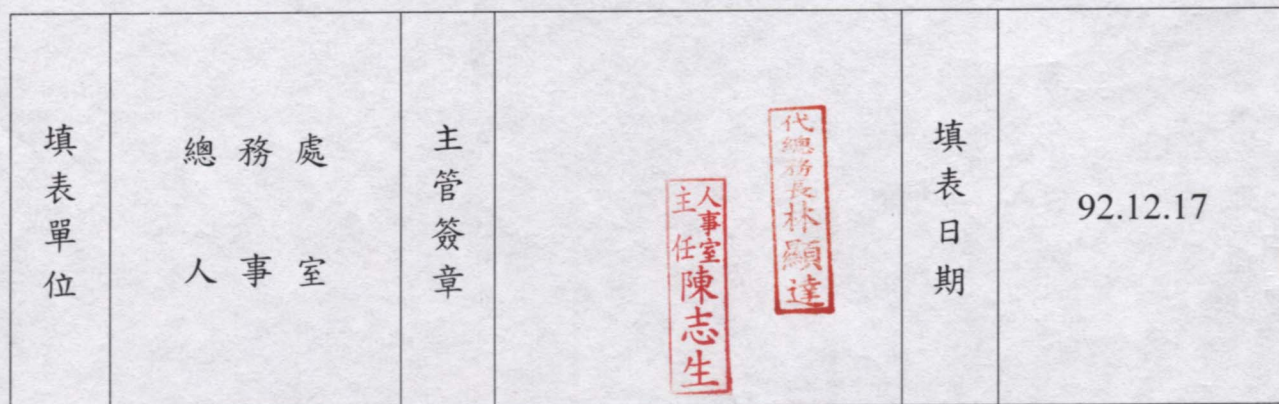 填表單位
總務處
人事室
主管簽章
代總務長林顯達
人事室
主任
陳志生
填表日期
92.12.17